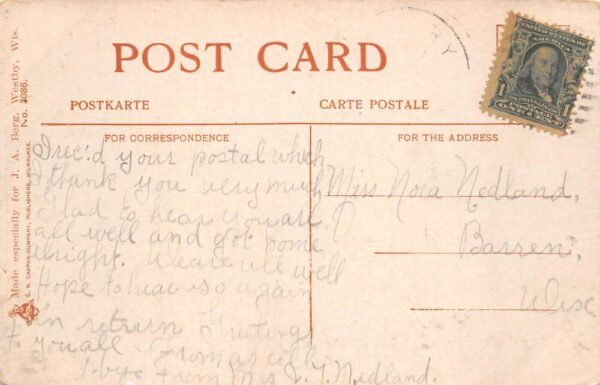 POST CARD
POSTKARTE
CARTE POSTALE
FOR CORRESPONDENCE
FOR THE ADDRESS
Made especially for J. A. Berg, Westby, Wis.
No. 3086.
UNITED STATES OF AMERICA
FRANKLIN
1 1
I rec'd your postal which
thank you very much
Glad to hear you are
all well and got home
alright. We are all well
Hope to hear so again
In return Greetings
to you all. From us all
bye From Mrs J. T. Nedland.
Miss Nora Nedland,
Barren,
Wisc